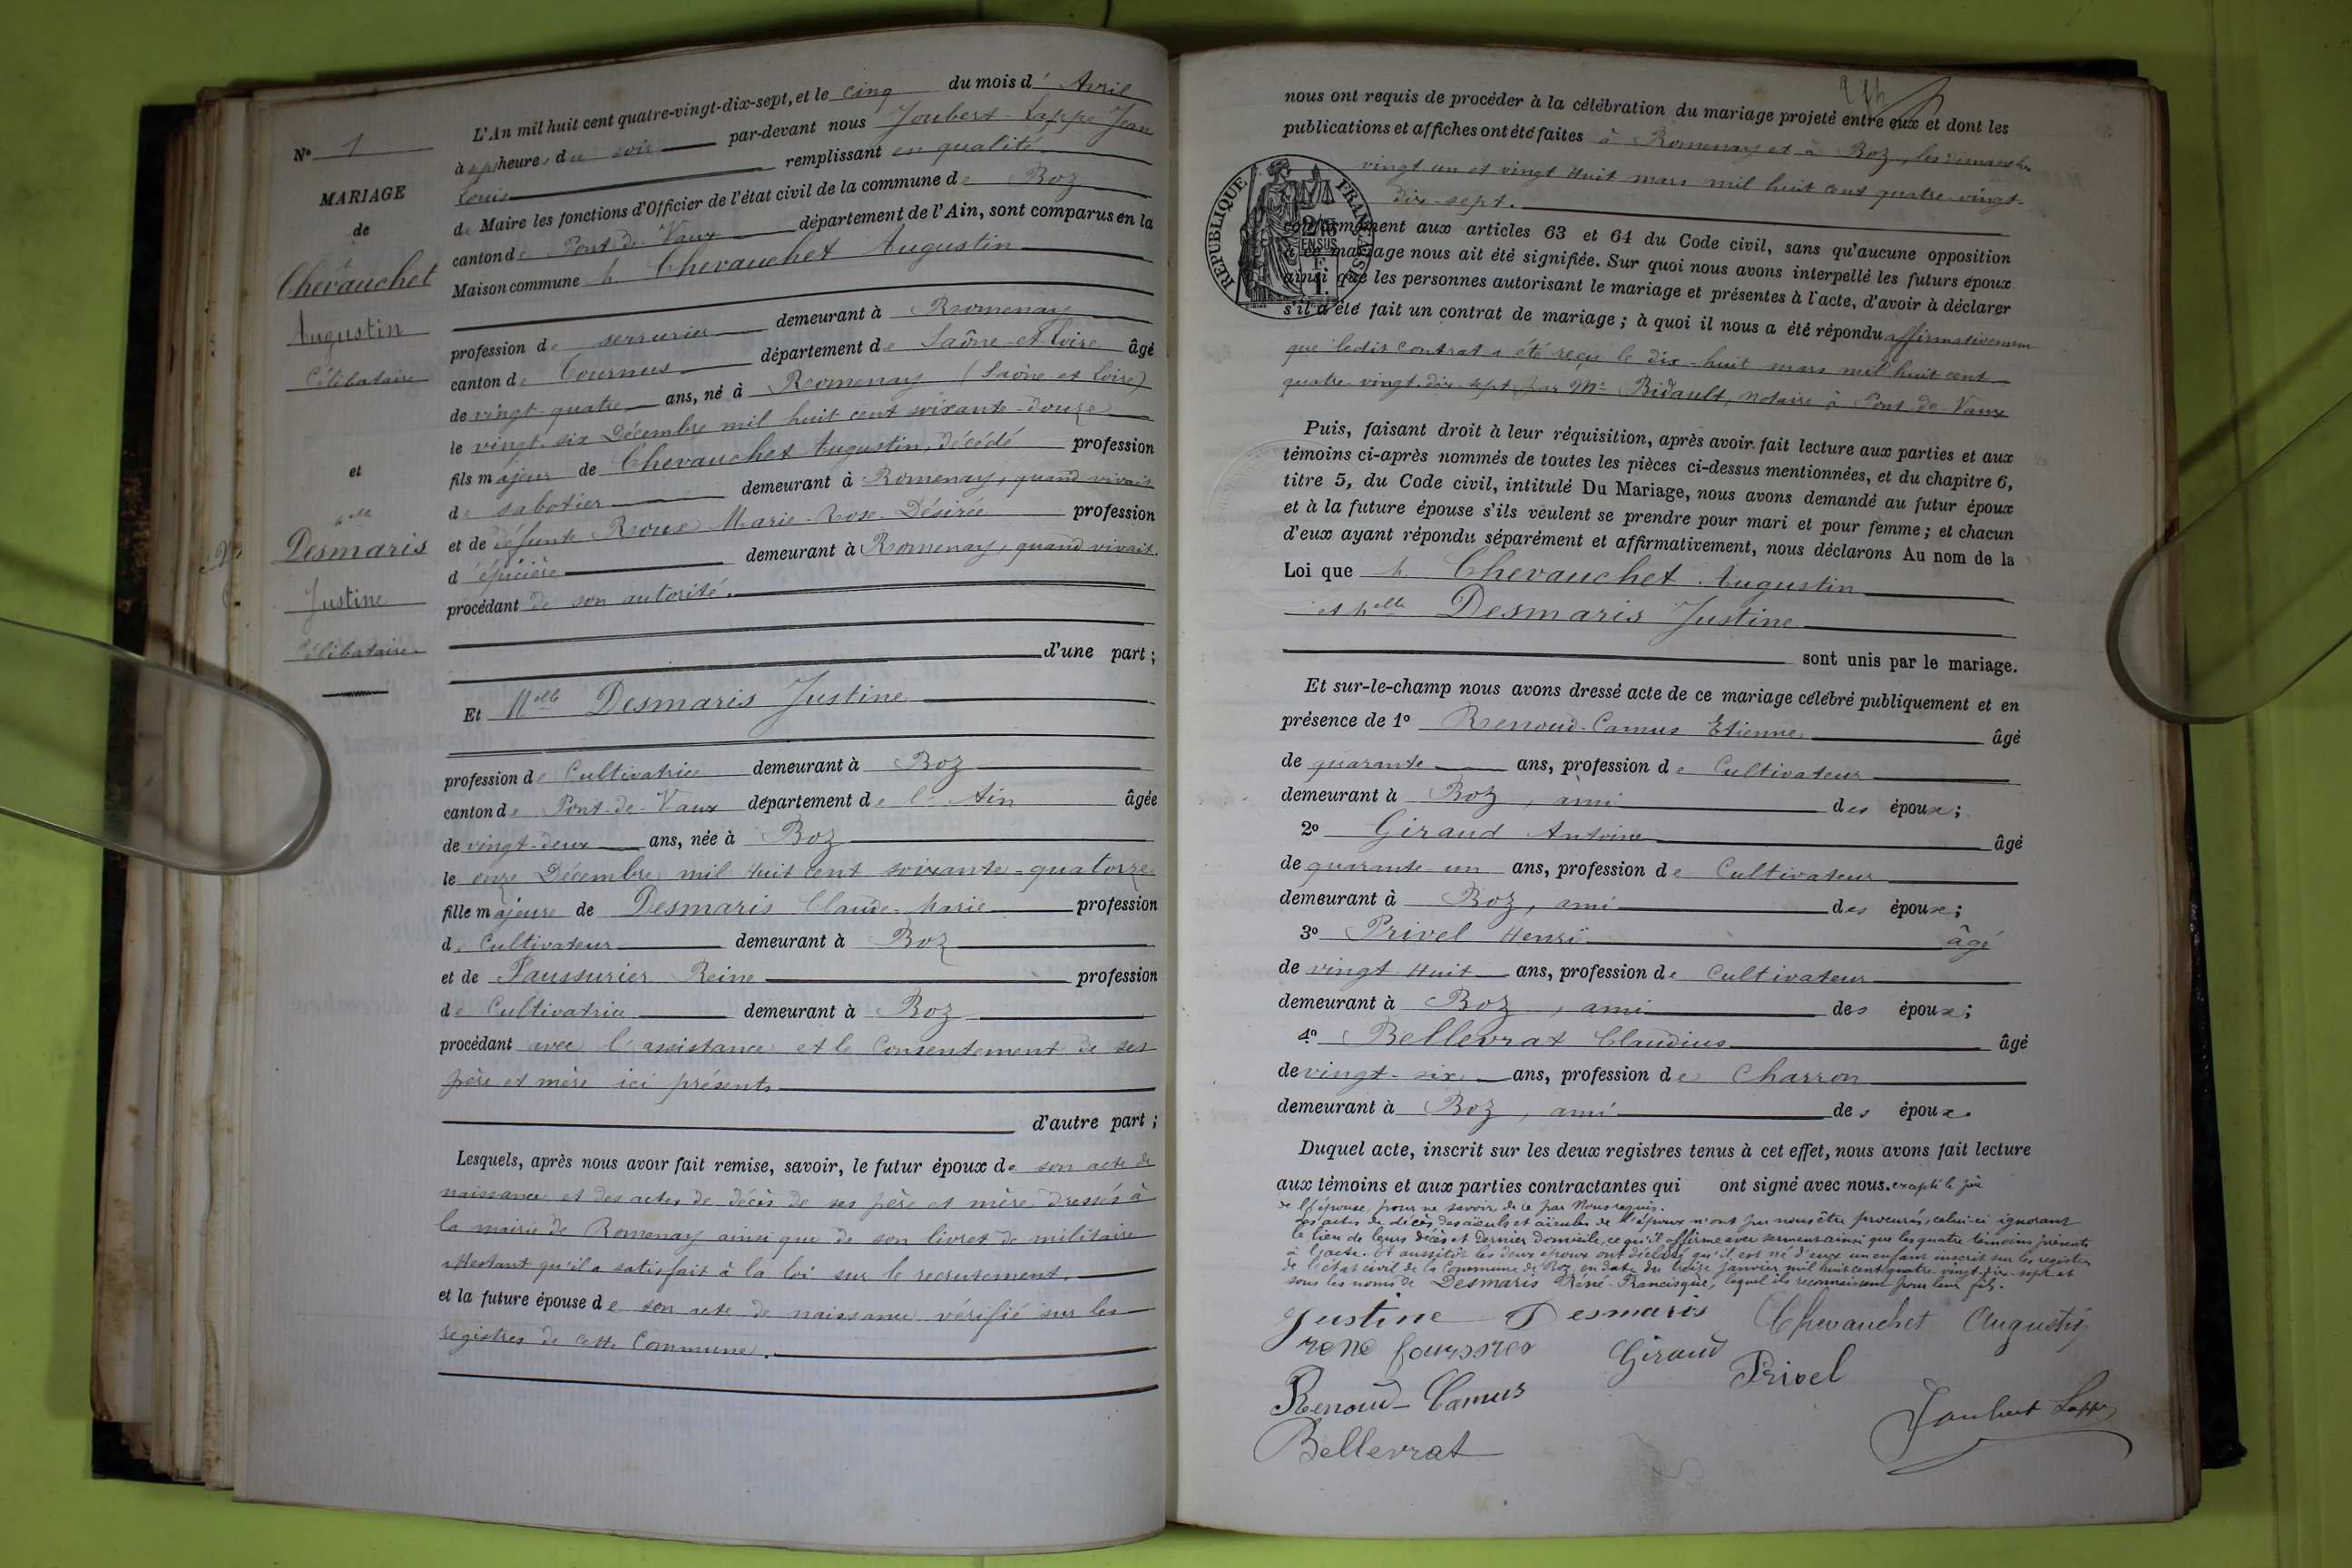 N° 1
MARIAGE
de
Chevauchet
Augustin
Célibataire
et
Desmaris
Justine
Célibataire
L'An mil huit cent quatre-vingt-dix-sept, et le cinq du mois d' Avril
à sept heures du soir par-devant nous Joubert-Lappe Jean
Louis remplissant en qualité
de Maire les fonctions d'Officier de l'état civil de la commune de Boz
canton de Pont-de-Vaux département de l'Ain, sont comparus en la
Maison commune M. Chevauchet Augustin
profession de serrurier demeurant à Romenay
canton de Tournus département de Saône-et-Loire âgé
de vingt-quatre ans, né à Romenay (Saône et Loire)
le vingt-six Décembre mil huit cent soixante-douze
fils majeur de Chevauchet Augustin, décédé profession
de sabotier demeurant à Romenay, quand vivait
et de défunte Roux Marie-Rose-Désirée profession
d'épicière demeurant à Romenay, quand vivait.
procédant de son autorité.
d'une part ;
Et Melle Desmaris Justine
profession de Cultivatrice demeurant à Boz
canton de Pont-de-Vaux département de l'Ain âgée
de vingt-deux ans, née à Boz
le onze Décembre mil huit cent soixante-quatorze
fille majeure de Desmaris Claude-Marie profession
de Cultivateur demeurant à Boz
et de Faussurier Reine profession
de Cultivatrice demeurant à Boz
procédant avec l'assistance et le Consentement de ses
père et mère ici présents
d'autre part ;
Lesquels, après nous avoir fait remise, savoir, le futur époux de son acte de
naissance et des actes de décès de ses père et mère dressés à
la mairie de Romenay ainsi que de son livret de militaire
attestant qu'il a satisfait à la loi sur le recrutement.
et la future épouse de son acte de naissance vérifié sur les
registres de cette Commune.
nous ont requis de procéder à la célébration du mariage projeté entre eux et dont les
publications et affiches ont été faites à Romenay et à Boz, les dimanches
vingt un et vingt huit mars mil huit cent quatre-vingt-
dix-sept.
RÉPUBLIQUE FRANÇAISE
2/10 EN SUS
conformément aux articles 63 et 64 du Code civil, sans qu'aucune opposition
à ce mariage nous ait été signifiée. Sur quoi nous avons interpellé les futurs époux
ainsi que les personnes autorisant le mariage et présentes à l'acte, d'avoir à déclarer
s'il a été fait un contrat de mariage ; à quoi il nous a été répondu affirmativement
que ledit Contrat a été reçu le dix-huit mars mil huit cent
quatre-vingt-dix-sept par Me Bidault, notaire à Pont-de-Vaux
Puis, faisant droit à leur réquisition, après avoir fait lecture aux parties et aux
témoins ci-après nommés de toutes les pièces ci-dessus mentionnées, et du chapitre 6,
titre 5, du Code civil, intitulé Du Mariage, nous avons demandé au futur époux
et à la future épouse s'ils veulent se prendre pour mari et pour femme ; et chacun
d'eux ayant répondu séparément et affirmativement, nous déclarons Au nom de la
Loi que M. Chevauchet Augustin
et Melle Desmaris Justine
sont unis par le mariage.
Et sur-le-champ nous avons dressé acte de ce mariage célébré publiquement et en
présence de 1° Renoud-Camus Etienne âgé
de quarante ans, profession de Cultivateur
demeurant à Boz, ami des époux ;
2° Giraud Antoine âgé
de quarante-un ans, profession de Cultivateur
demeurant à Boz, ami des époux ;
3° Privel Henri âgé
de vingt huit ans, profession de Cultivateur
demeurant à Boz, ami des époux ;
4° Bellevrat Claudius âgé
de vingt-six ans, profession de Charron
demeurant à Boz, ami des époux.
Duquel acte, inscrit sur les deux registres tenus à cet effet, nous avons fait lecture
aux témoins et aux parties contractantes qui ont signé avec nous. excepté le père
de l'épouse, pour ne savoir, de ce par Nous requis.
Les actes de décès des aïeuls et aïeules de l'époux n'ont pu nous être procurés, celui-ci ignorant
le lieu de leurs décès et dernier domicile, ce qu'il affirme avec serment ainsi que les quatre témoins présents
à l'acte. Et aussitôt les deux époux ont déclaré qu'il est né d'eux un enfant inscrit sur les registres
de l'état civil de la Commune de Boz en date du treize janvier mil huit cent quatre-vingt-dix-sept et
sous les noms de Desmaris Réné-Francisque, lequel ils reconnaissent pour leur fils.
Justine Desmaris Chevauchet Augustin
Giraud
Privel
Renoud-Camus
Joubert Lappe
Bellevrat